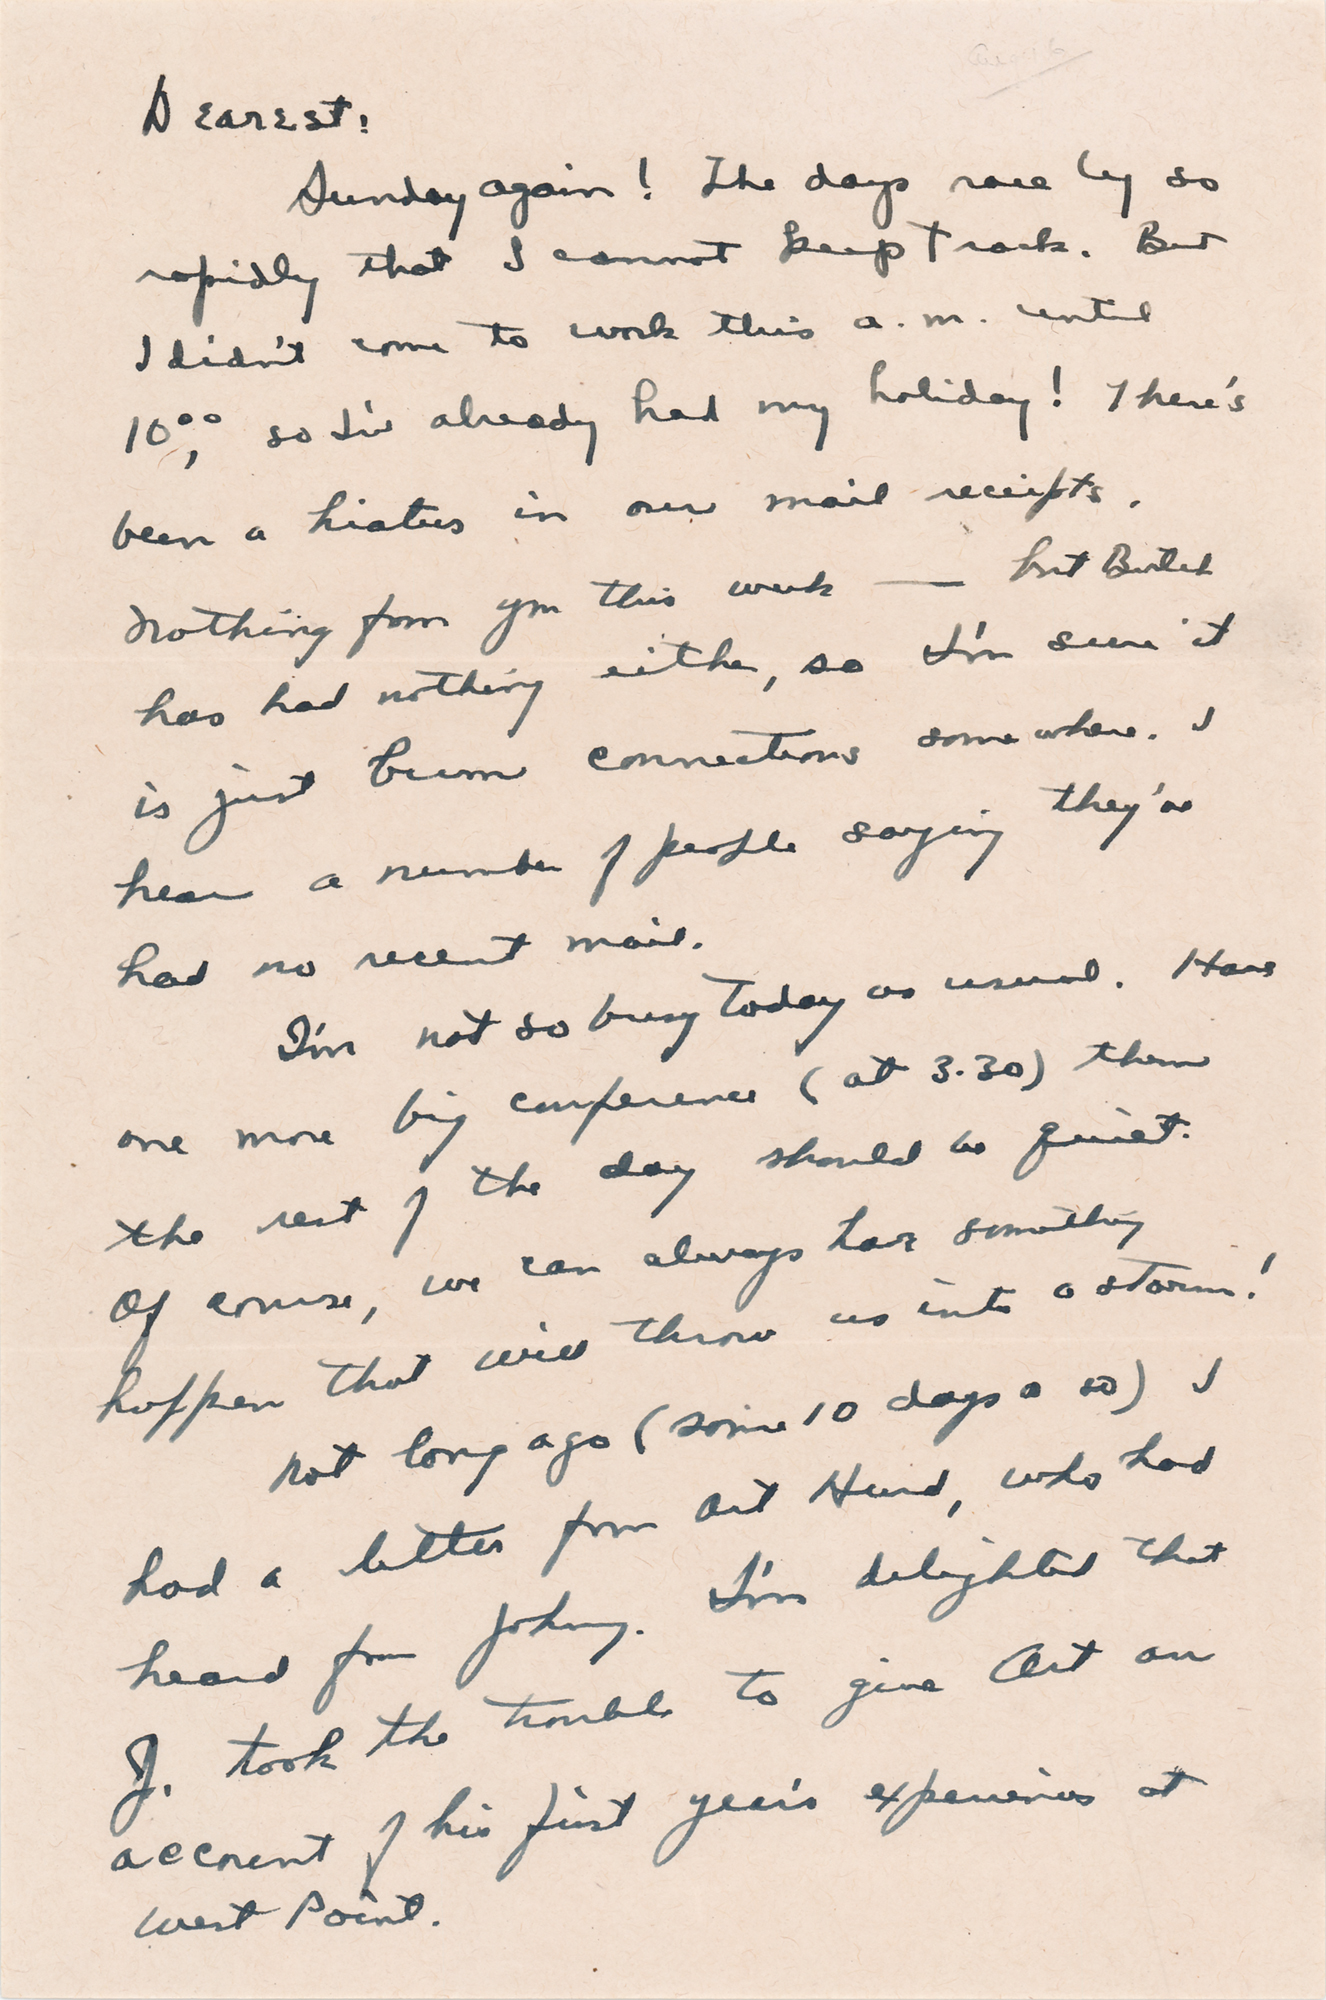 Dearest:
Sunday again! The days race by so
rapidly that I cannot keep track. But
I didn't come to work this a.m. until
10⁰⁰, so I've already had my holiday! There's
been a hiatus in our mail receipts.
Nothing from you this week — but Butch
has had nothing either, so I'm sure it
is just bum connections somewhere. I
hear a number of people saying they've
had no recent mail.
I'm not so busy today as usual. Have
one more big conference (at 3.30) then
the rest of the day should be quiet.
Of course, we can always have something
happen that will throw us into a storm!
Not long ago (some 10 days or so) I
had a letter from Art Hurd, who had
heard from Johnny. I'm delighted that
J. took the trouble to give Art an
account of his first year's experiences at
West Point.